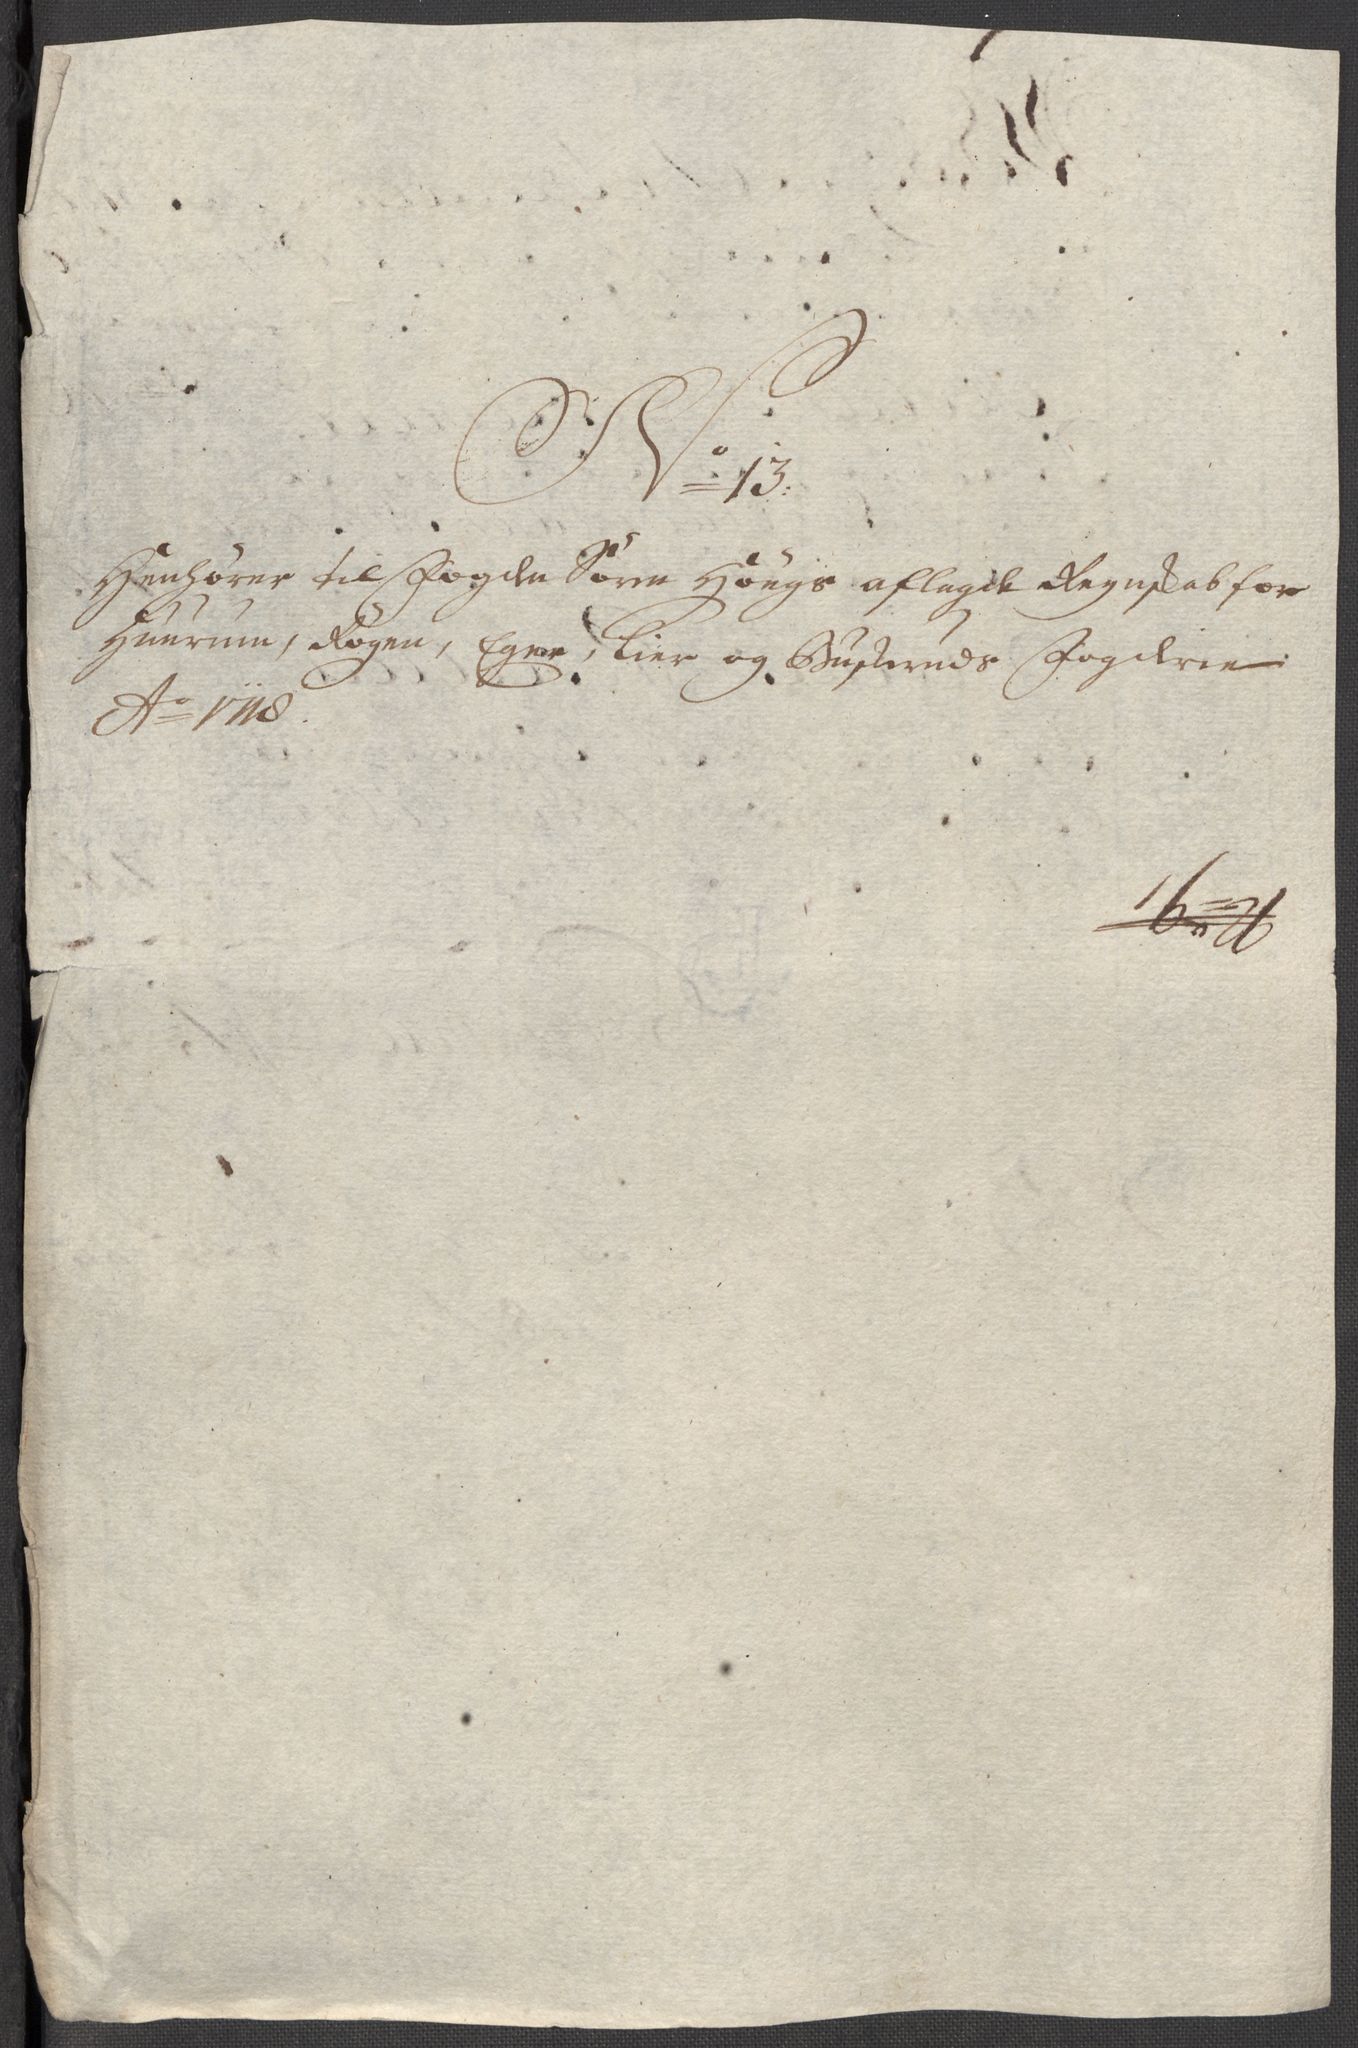 No 13.
Henhører til Fogden Søren Høegs aflagde Regnskab for
Huurum, Røgen, Eger, Lier og Buskeruds Fogderie
Ao 1718.